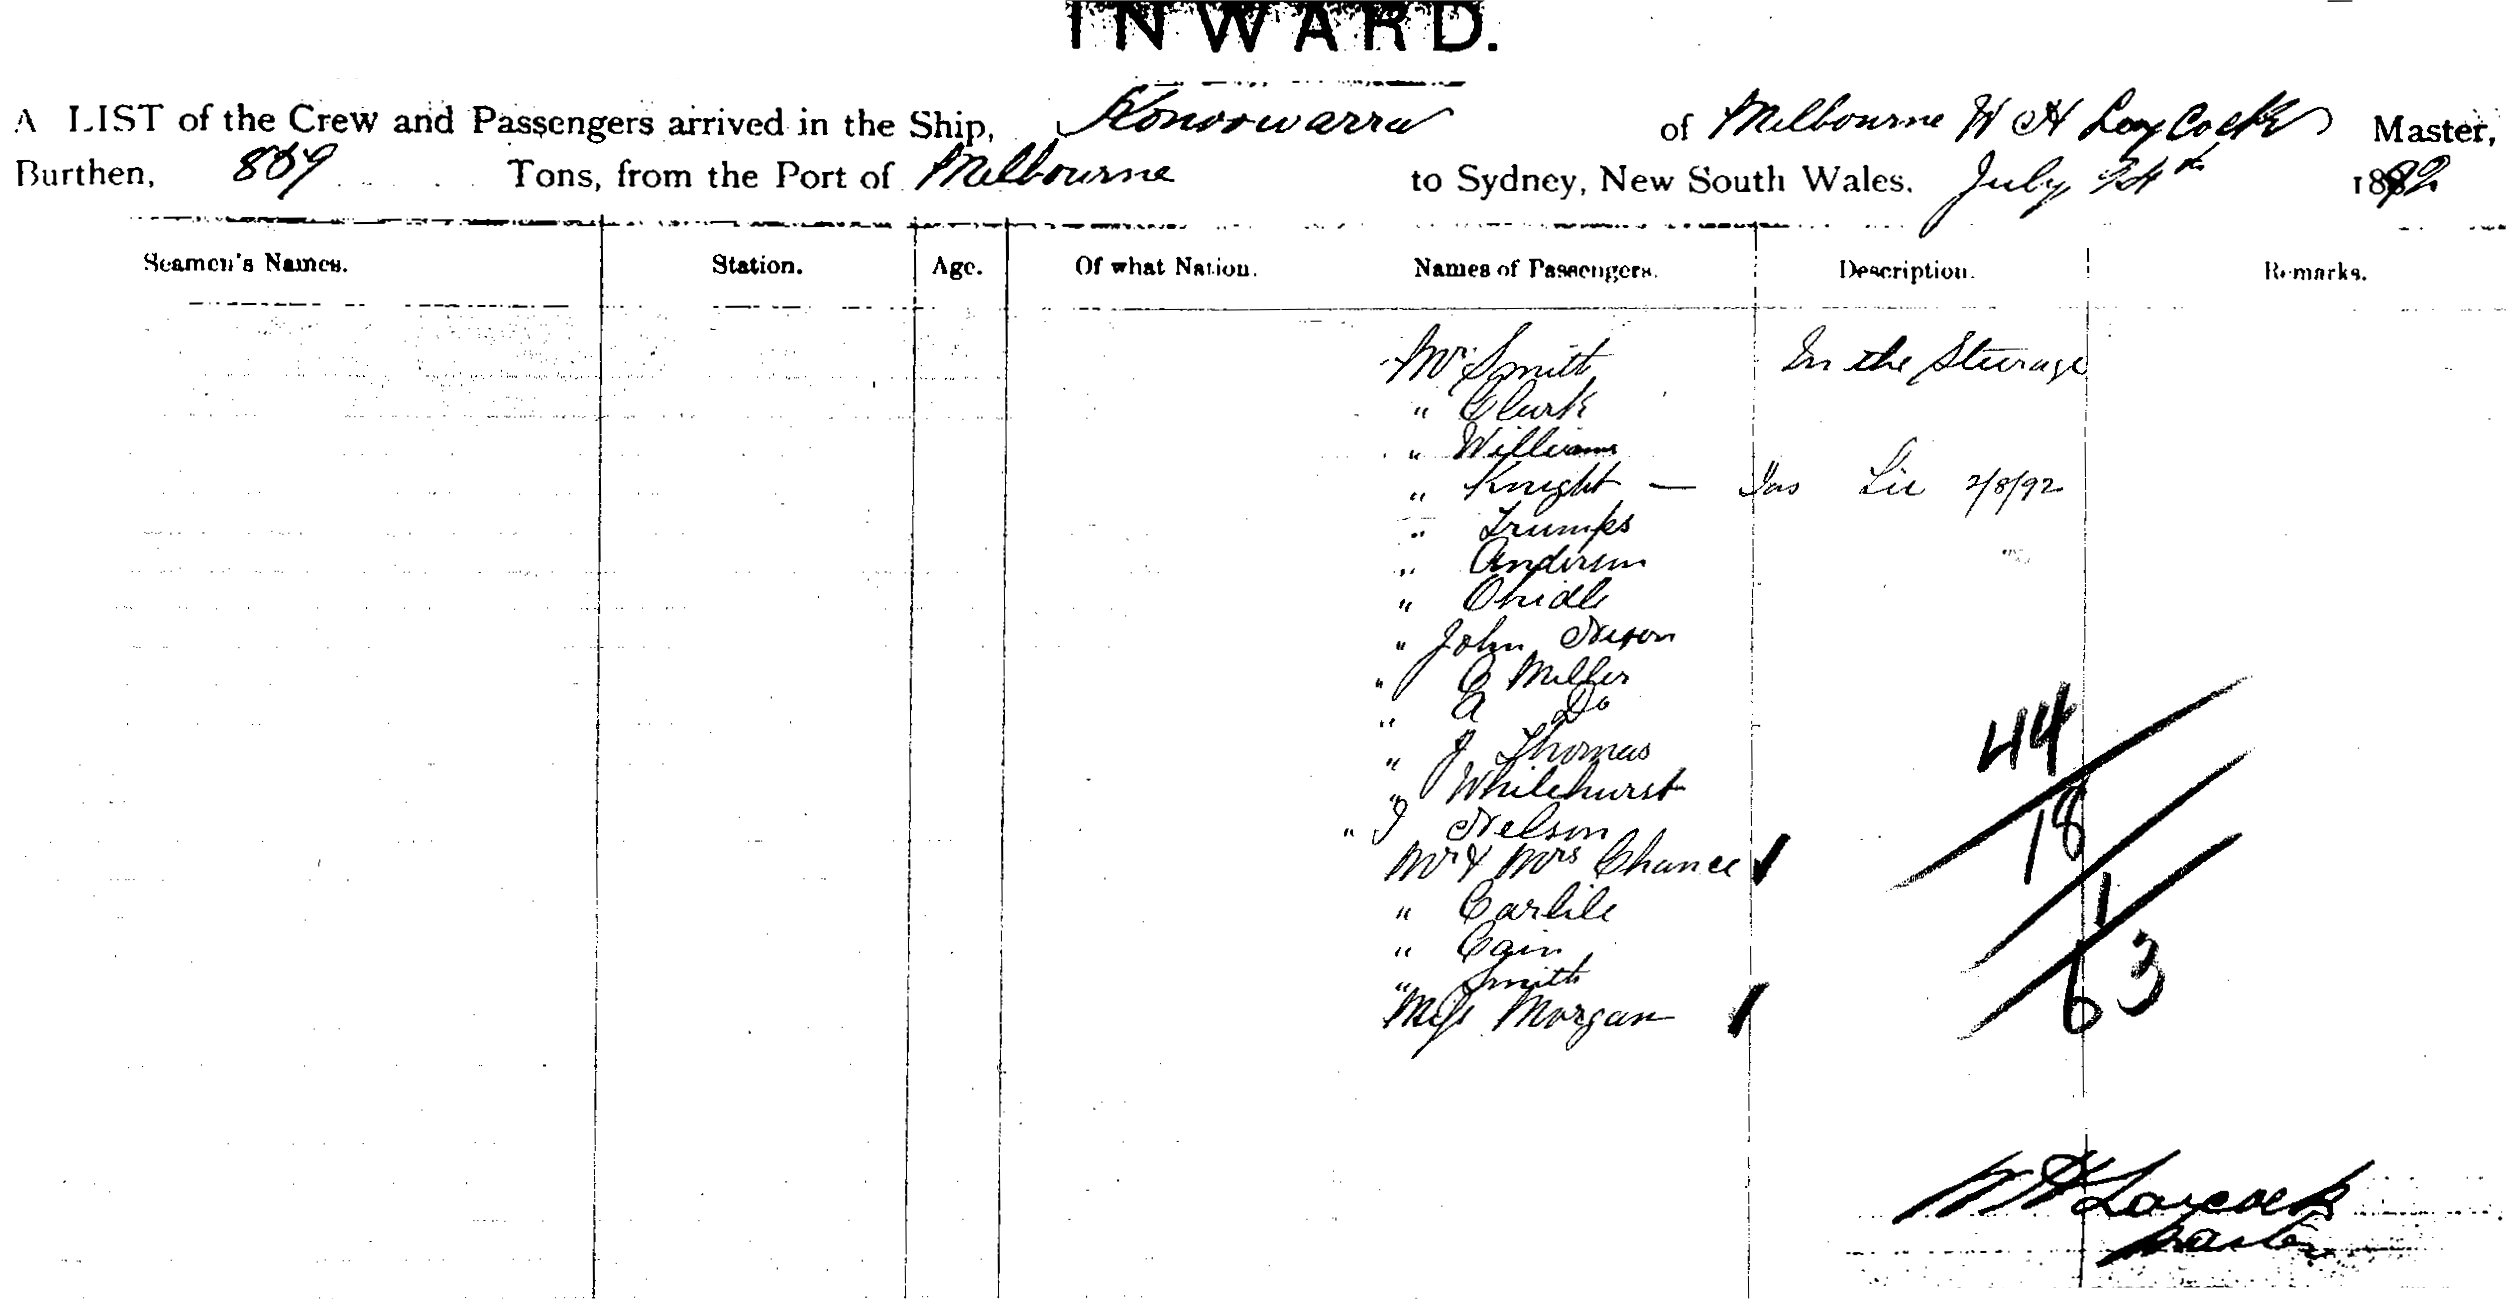 INWARD.
A LIST of the Crew and Passengers arrived in the Ship, Konoowarra of Melbourne W H Laycock Master,
Burthen, 889 Tons, from the Port of Melbourne to Sydney, New South Wales. July 24th 1892
Seamen's Names. Station. Age. Of what Nation. Names of Passengers. Description. Remarks.
Mr Smith In the Steerage
" Clark
" Williams
" Knight — 2/8/92
" Trumps
" Anderson
"
" John Nixon
" C Miller
" A Do
" J Thomas
" Whitehurst
" J Nelson
Mr & Mrs Chance
" Carlile
" Cain
" Smith
Miss Morgan
44
18
1
63
W H Laycock
Master